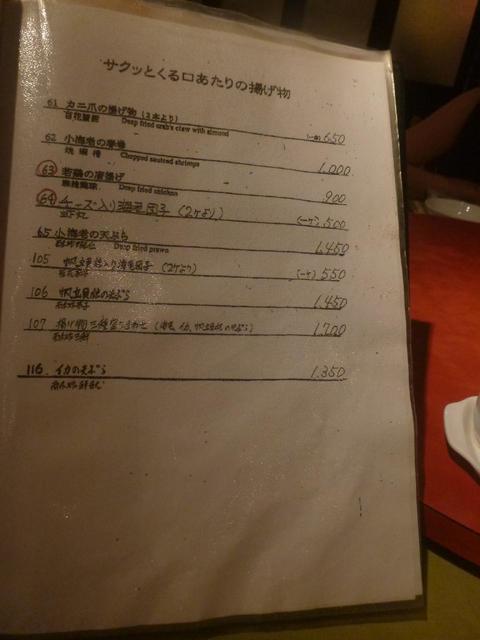 サクッとくる口あたりの揚げ物
61 カニ爪の揚げ物 (2本より) (一本) 650
百花蟹鉗 Deep fried crab's claw with almond
62 小海老の春巻 1,000
Chopped sauteed shrimps
63 若鶏の唐揚げ 900
Deep fried chicken
64 チーズ入り海老団子 (2ケより) (一ケ) 500
65 小海老の天ぷら 1,450
Deep fried prawn
105 帆立貝柱入り海老団子 (2ケより) (一ケ) 550
106 帆立貝柱の天ぷら 1,450
107 揚げ物三種盛り合わせ (海老、イカ、帆立貝柱の天ぷら) 1,700
116. イカの天ぷら 1,350